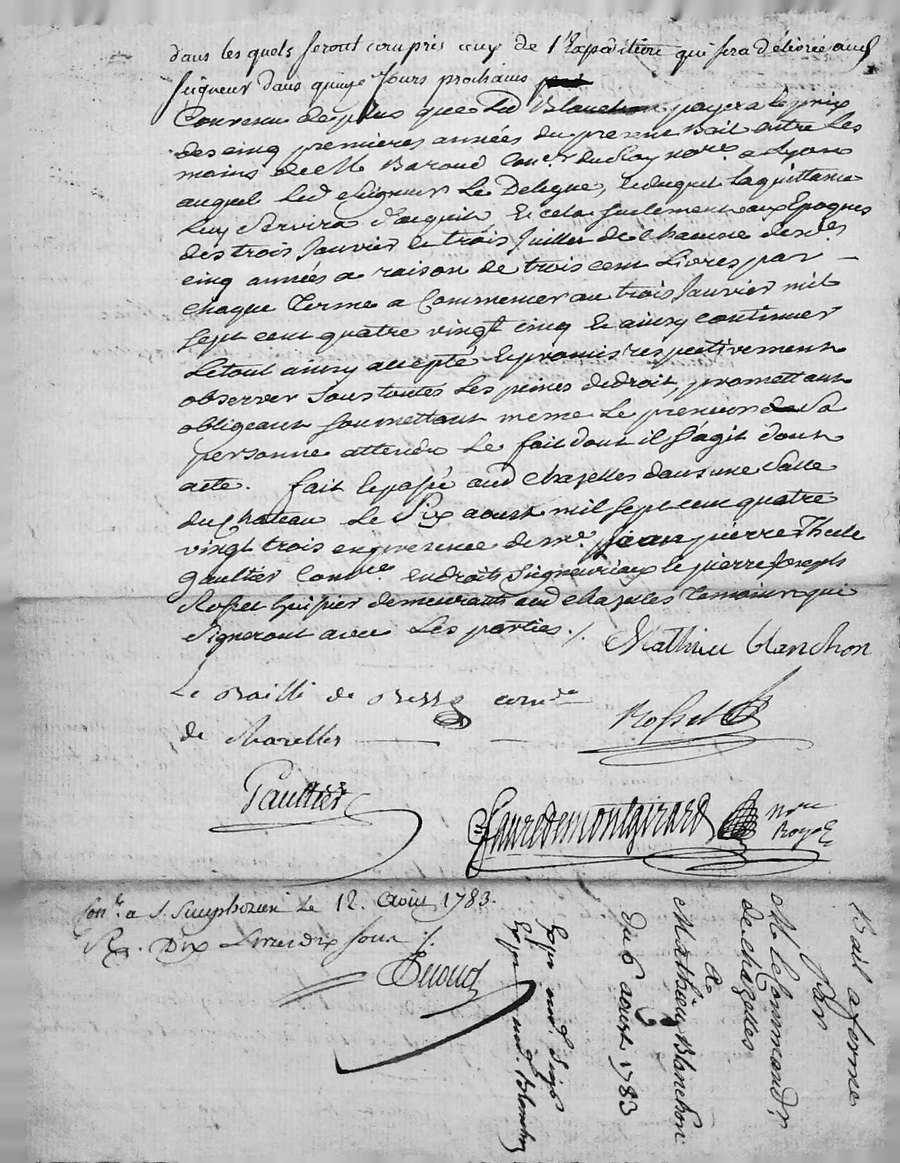 dans les quels seront compris ceux de l'Expedition qui sera délivrée aud
seigneur dans quinze Jours prochains
Convenu de plus que Led Blanchon payera le prix
des cinq premieres années du present Bail entre Les
mains de M Baroud Con.er du Roy no.re a Lyon
auquel Led Seigneur Le Delegue, duquel La quittance
Luy Servira d'acquit, Et cela seulement aux Epoques
des trois Janvier et trois Juillet de Chacune desd.es
cinq années a raison de trois cent Livres par
chaque Terme a Commencer au trois Janvier mil
sept cent quatre vingt cinq et ainsy continuer
Le tout ainsy accepté et promis respectivement
observer sous toutes Les peines de droit, promettant
obligeant soumettant meme Le preneur sa
personne attendu Le fait dont il s'agit dont
acte. fait et passé aud Chazelles dans une Salle
du Chateau Le Six aoust mil sept cent quatre
vingt trois en presence de me. Jean pierre
Gaultier Com.re en droits Seigneuriaux et pierre Joseph
Rosset huissier demeurants aud Chazelles Temoins qui
Signeront avec Les parties ./. Mathieu blanchon
Le Bailli de com.de
de chazelles
Rosset
Gaultier
Fauredemontgirard no.re
Royal
Con.lé a S. Simphorien le 12. Aoust 1783.
R. Dix Livres dix sous ./.
Bail a ferme
Par
M. le Command.r
de chazelles
A
Mathieu Blanchon
Du 6 aoust 1783
Exp. aud. Seig.r
Exp. aud. Blanchon